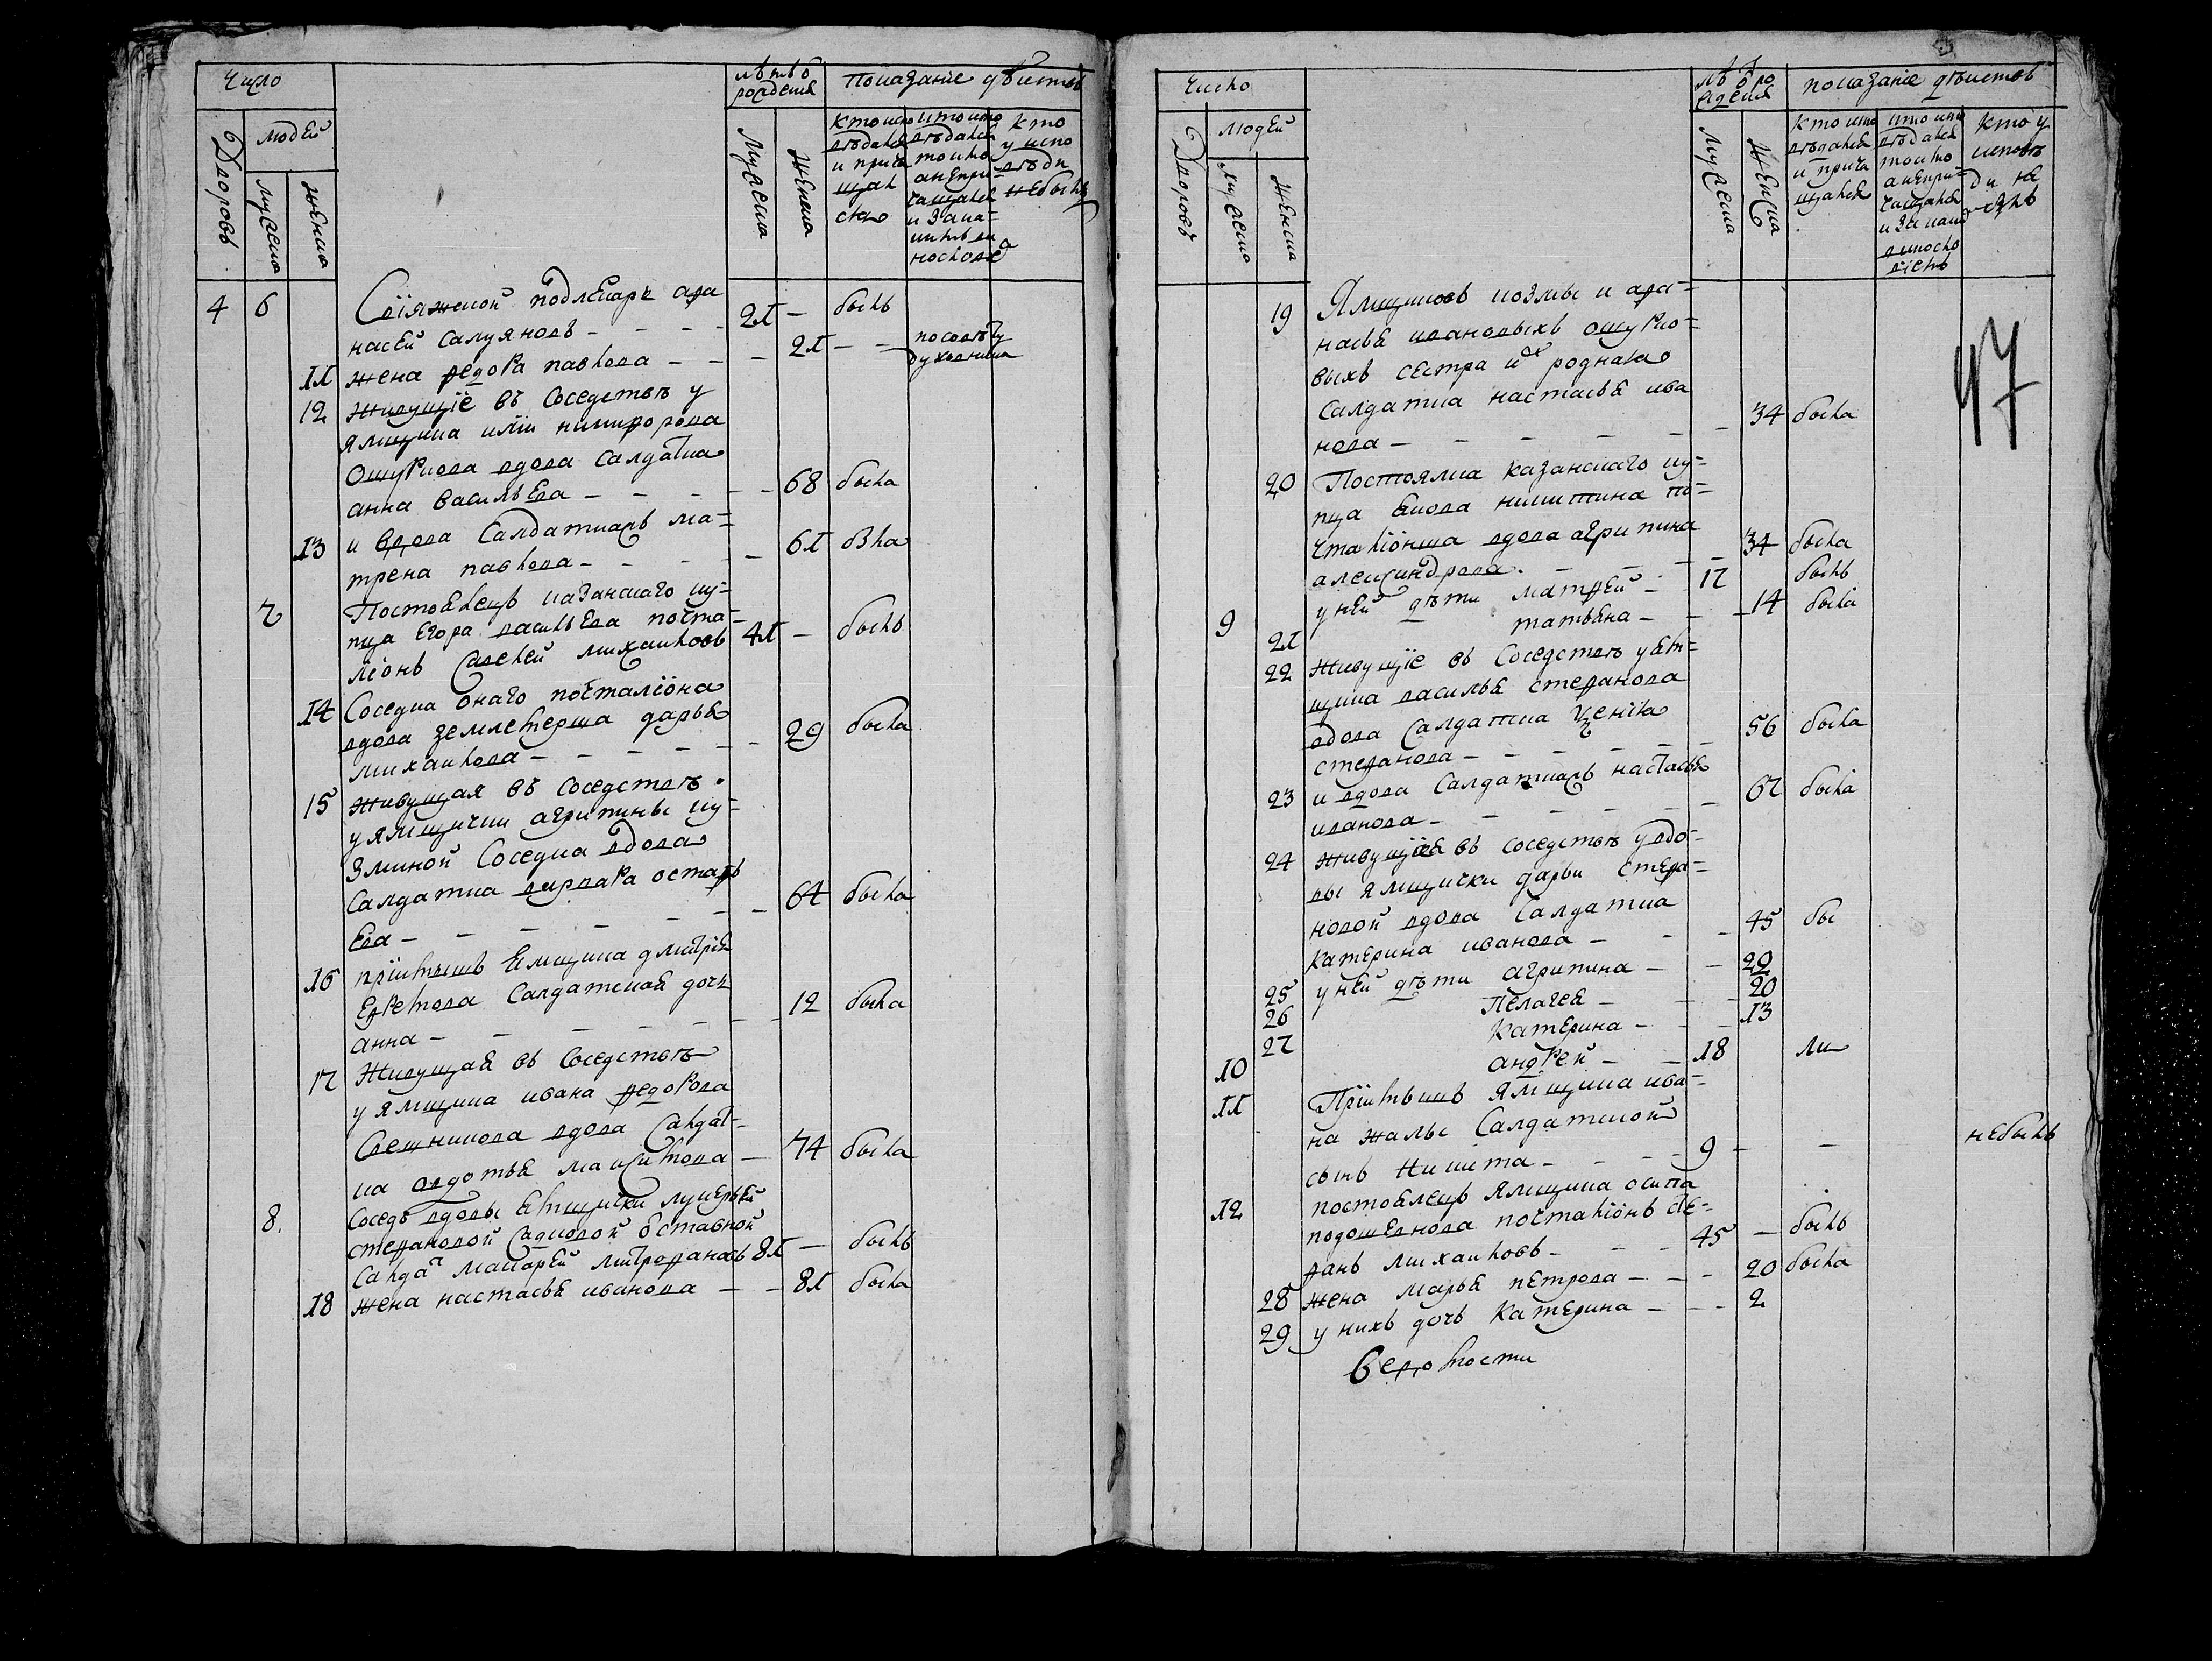 Число
лѣтъ ѿ рожденiя
Показанiе дѣйствъ
Дворовъ
людей
мужеска
женска
мужеска
женска
кто испо
вѣдался
и прича
щал
ся
кто испо
вѣдался
токмо
а не при-
чащался
и за ка-
кимъ ви
нословi
кто
у испо
вѣди
небылъ
4 6 Съѣзжей подлекарь афа
насей самуяновъ - - - - 21 - былъ
11 жена федора павлова - - - 21 - - по совѣту духовника
12 живущiе въ соседствѣ у
ямщика никифорова
Ошуркова вдова салдатка
анна васильева - - - - - 68 была
13 и вдова салдатка ма-
трена павлова - - - - - 61 была
7 Постоялецъ казанскаго ку-
пца егора васильева почта-
лiонъ алексей михайловъ 41 - былъ
14 Соседка онаго почталiона
вдова землемерша дарья
михайлова - - - - - - 29 была
15 живущая въ соседствѣ
у ямщички агрипины ку-
зминой соседка вдова
салдатка варвара остафь
ева - - - - - - - 64 была
16 прiимышъ ямщика дмитрея
ефремова салдатская дочь
анна - - - - - - - 12 была
17 Живущая въ соседствѣ
у ямщика ивана федорова
Свешникова вдова салдат-
ка авдотья максимова - 74 была
8. соседъ вдовы ямщички лукерьи
степановой садковой отставной
салдатъ макарей митрофановъ 81 - былъ
18 жена настасья иванова - - 81 была
Число
лѣтъ ѿ ро
жденiя
показанiе дѣйствъ
Дворовъ
людей
мужеска
женска
мужеска
женска
кто испо
вѣдался
и прича
щался
кто испо
вѣдался
токмо
а не при-
чащался
и за каким
винословi
емъ
кто у
исповѣ
ди не
былъ
47
19 Ямщиковъ козмы и афа-
насья ивановыхъ ошурко-
выхъ сестра их родная
салдатка настасья ива
нова - - - - - - 34 была
20 Постоялка казанскаго ку-
пца якова никитина по-
чталiонша вдова агрипина
александрова - - - - 34 была
9 у ней дѣти матфей - 17 былъ
21 татьяна - - - 14 была
22 живущiе въ соседствѣ у ям-
щика василья степанова
вдова салдатка ѯенiя
степанова - - - - - - 56 была
23 и вдова салдатка настасья
иванова - - - - - - 67 была
24 живущiя въ соседствѣ у вдо-
вы ямщички дарьи степа-
новой вдова салдатка
катерина иванова - - - 45 бы
25 у ней дѣти агрипина - - 20
26 Пелагея - - - 20
27 катерина - - - 13
10 андрей - - 18 ли
11 Прiимышъ ямщика ива-
на жалы салдатской
сынъ никита - - - - 9 - - небылъ
12 постоялецъ ямщика осипа
подошевнова почталiонъ сте-
фанъ михайловъ - - - 45 - былъ
28 жена марья петрова - - - 20 была
29 у нихъ дочь катерина - - - 2
ведомости